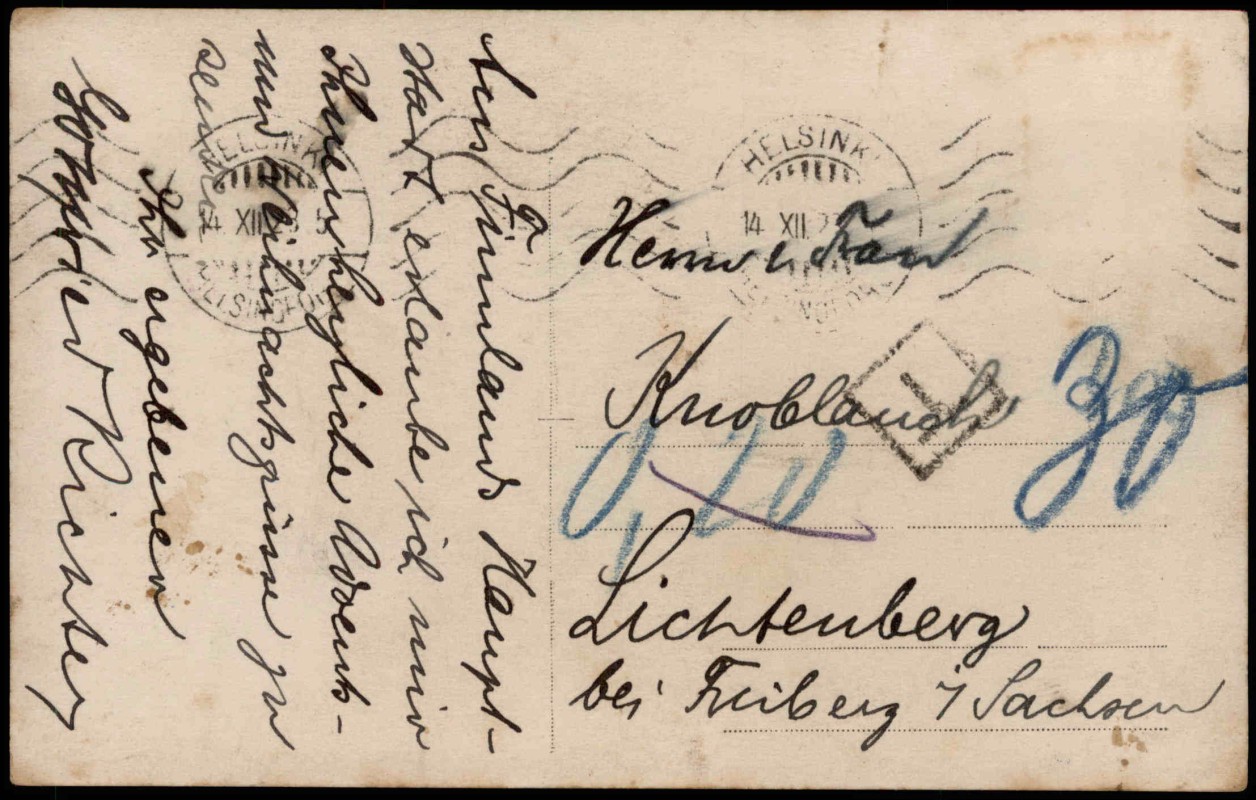 Aus Finnlands Haupt-
stadt erlaube ich mir
Ihnen herzliche Advents-
und Weihnachtsgrüsse zu
senden
Ihr ergebener
Gottfried Richter
HELSINKI
14 XII 23 5
HELSINGFORS
HELSINKI
14 XII. 23
HELSINGFORS
Herrn u. Frau
Knoblauch
T
30
0,20
Lichtenberg
bei Freiberg i/Sachsen